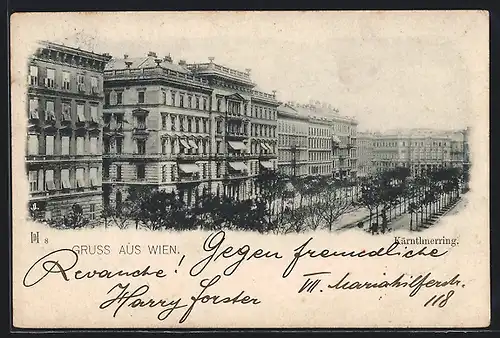 H 8
GRUSS AUS WIEN.
Kärnthnerring.
Gegen freundliche
Revanche!
Harry Forster
VII. Mariahilferstr.
118